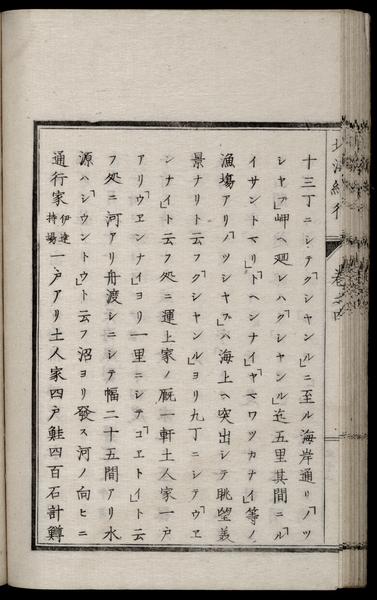 十三丁ニシテ「クシヤンル」ニ至ル海岸通リ「ノツ
シヤブ」岬ヘ廻レハ「クシヤンル」迄五里其間ニ「ル
イサントマリ」「トヘンナイ」「ヤマワツカナイ」等ノ
漁塲アリ「ノツシヤブ」ハ海上ヘ突出シテ眺望美
景ナリト云フ「クシヤンル」ヨリ九丁ニシテ「ウヱ
ンナイ」ト云フ処ニ運上家ノ厩一軒土人家一戸
アリ「ウヱンナイ」ヨリ一里ニシテ「コヱトイ」ト云
フ処ニ河アリ舟渡シニシテ幅二十五間アリ水
源ハ「シウントウ」ト云フ沼ヨリ發ス河ノ向ヒニ
通行家伊達持塲一戸アリ土人家四戸鮭四百石計鱒
北海紀行 卷之四